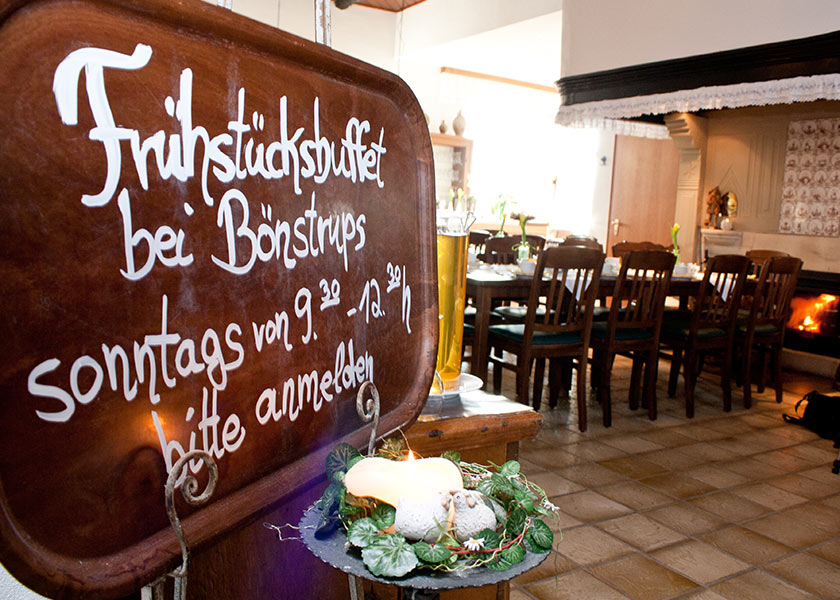 Frühstücksbuffet
bei Bönstrups
sonntags von 9.30 - 12.30 h
bitte anmelden